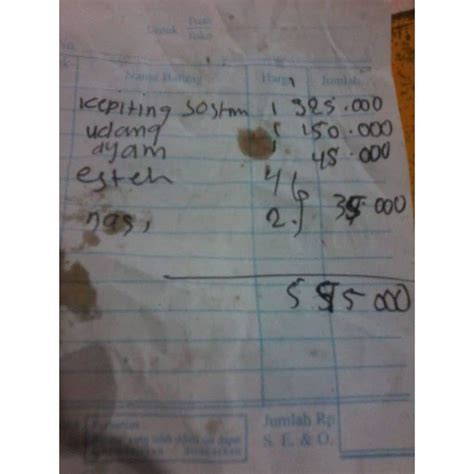 Tuan
Toko
No.
Nama Barang Harga Jumlah
kepiting 1 325.000
udang 150.000
ayam 45.000
esteh 4
nasi 2 35.000
555.000
Jumlah Rp
S. E. & O.
Perhatian